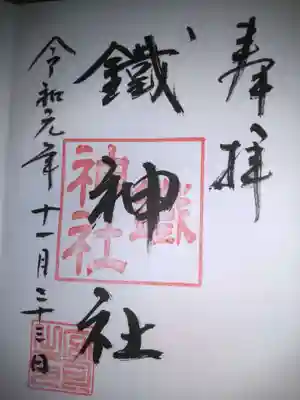 奉拝
鐵神社
令和元年十一月二十三日
鐵神社